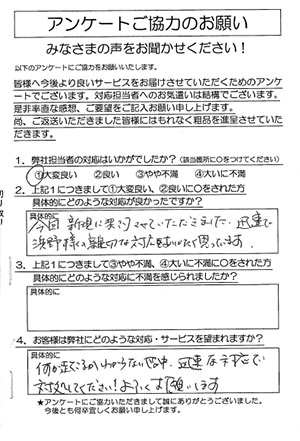 アンケートご協力のお願い
みなさまの声をお聞かせください！
以下のアンケートにご協力をお願いいたします。
皆様へ今後より良いサービスをお届けさせていただくためのアンケ
ートでございます。対応担当者へのお気遣いは結構でございます。
是非率直な感想、ご要望をご記入お願い申し上げます。
尚、ご返送いただきました皆様にはもれなく粗品を進呈させていた
だきます。
1．弊社担当者の対応はいかがでしたか？（該当箇所に○をつけてください）
①大変良い ②良い ③やや不満 ④大いに不満
2．上記１につきまして①大変良い、②良いに○をされた方
具体的にどのような対応が良かったですか？
具体的に
今回新規に
させていただきました。迅速で
親切な対応
思っています。
3．上記１につきまして③やや不満、④大いに不満に○をされた方
具体的にどのような対応に不満を感じられましたか？
具体的に
4．お客様は弊社にどのような対応・サービスを望まれますか？
具体的に
何が起こるかわからない世の中、迅速な対応で
対処してください！よろしくお願いします
★アンケートにご協力いただきまして誠にありがとうございました。
今後とも何卒宜しくお願い申し上げます。